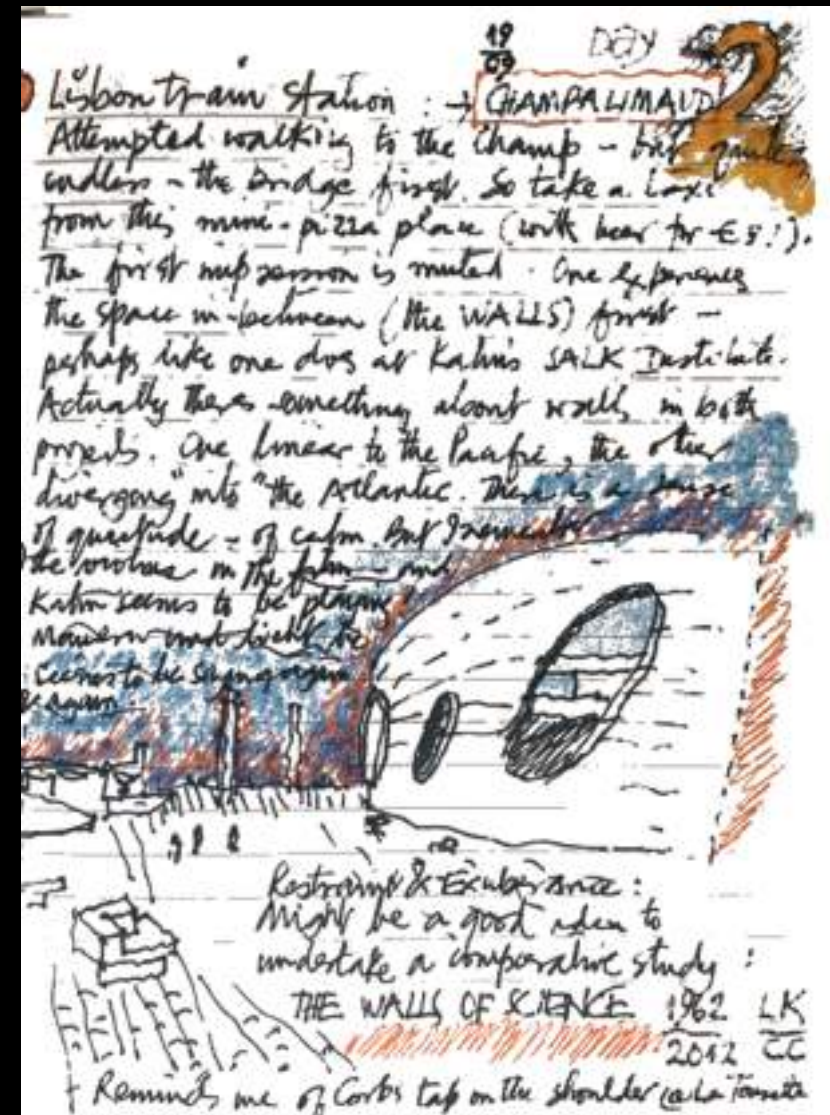 19
09
DAY 2
Lisbon train station : → CHAMPALIMAUD
Attempted walking to the Champ - but quite
endless - the bridge first. So take a taxi
from this mini-pizza place (with beer for € 8!).
The first impression is muted. One experiences
the space in-between (the WALLS) first -
perhaps like one does at Kahn's SALK Institute.
Actually theres something about walls in both
projects. One linear to the Pacific, the other
"diverging" into the Atlantic. There is a sense
of quietude - of calm. But I remember
the in the film - and
Kahn seems to be playing
he
seems to be saying again
& again
Restraint & Exuberance :
Might be a good idea to
undertake a comparative study :
THE WALLS OF SCIENCE 1962 LK
2012 CC
Reminds me of Corbs tap on the shoulder @ La Tourette